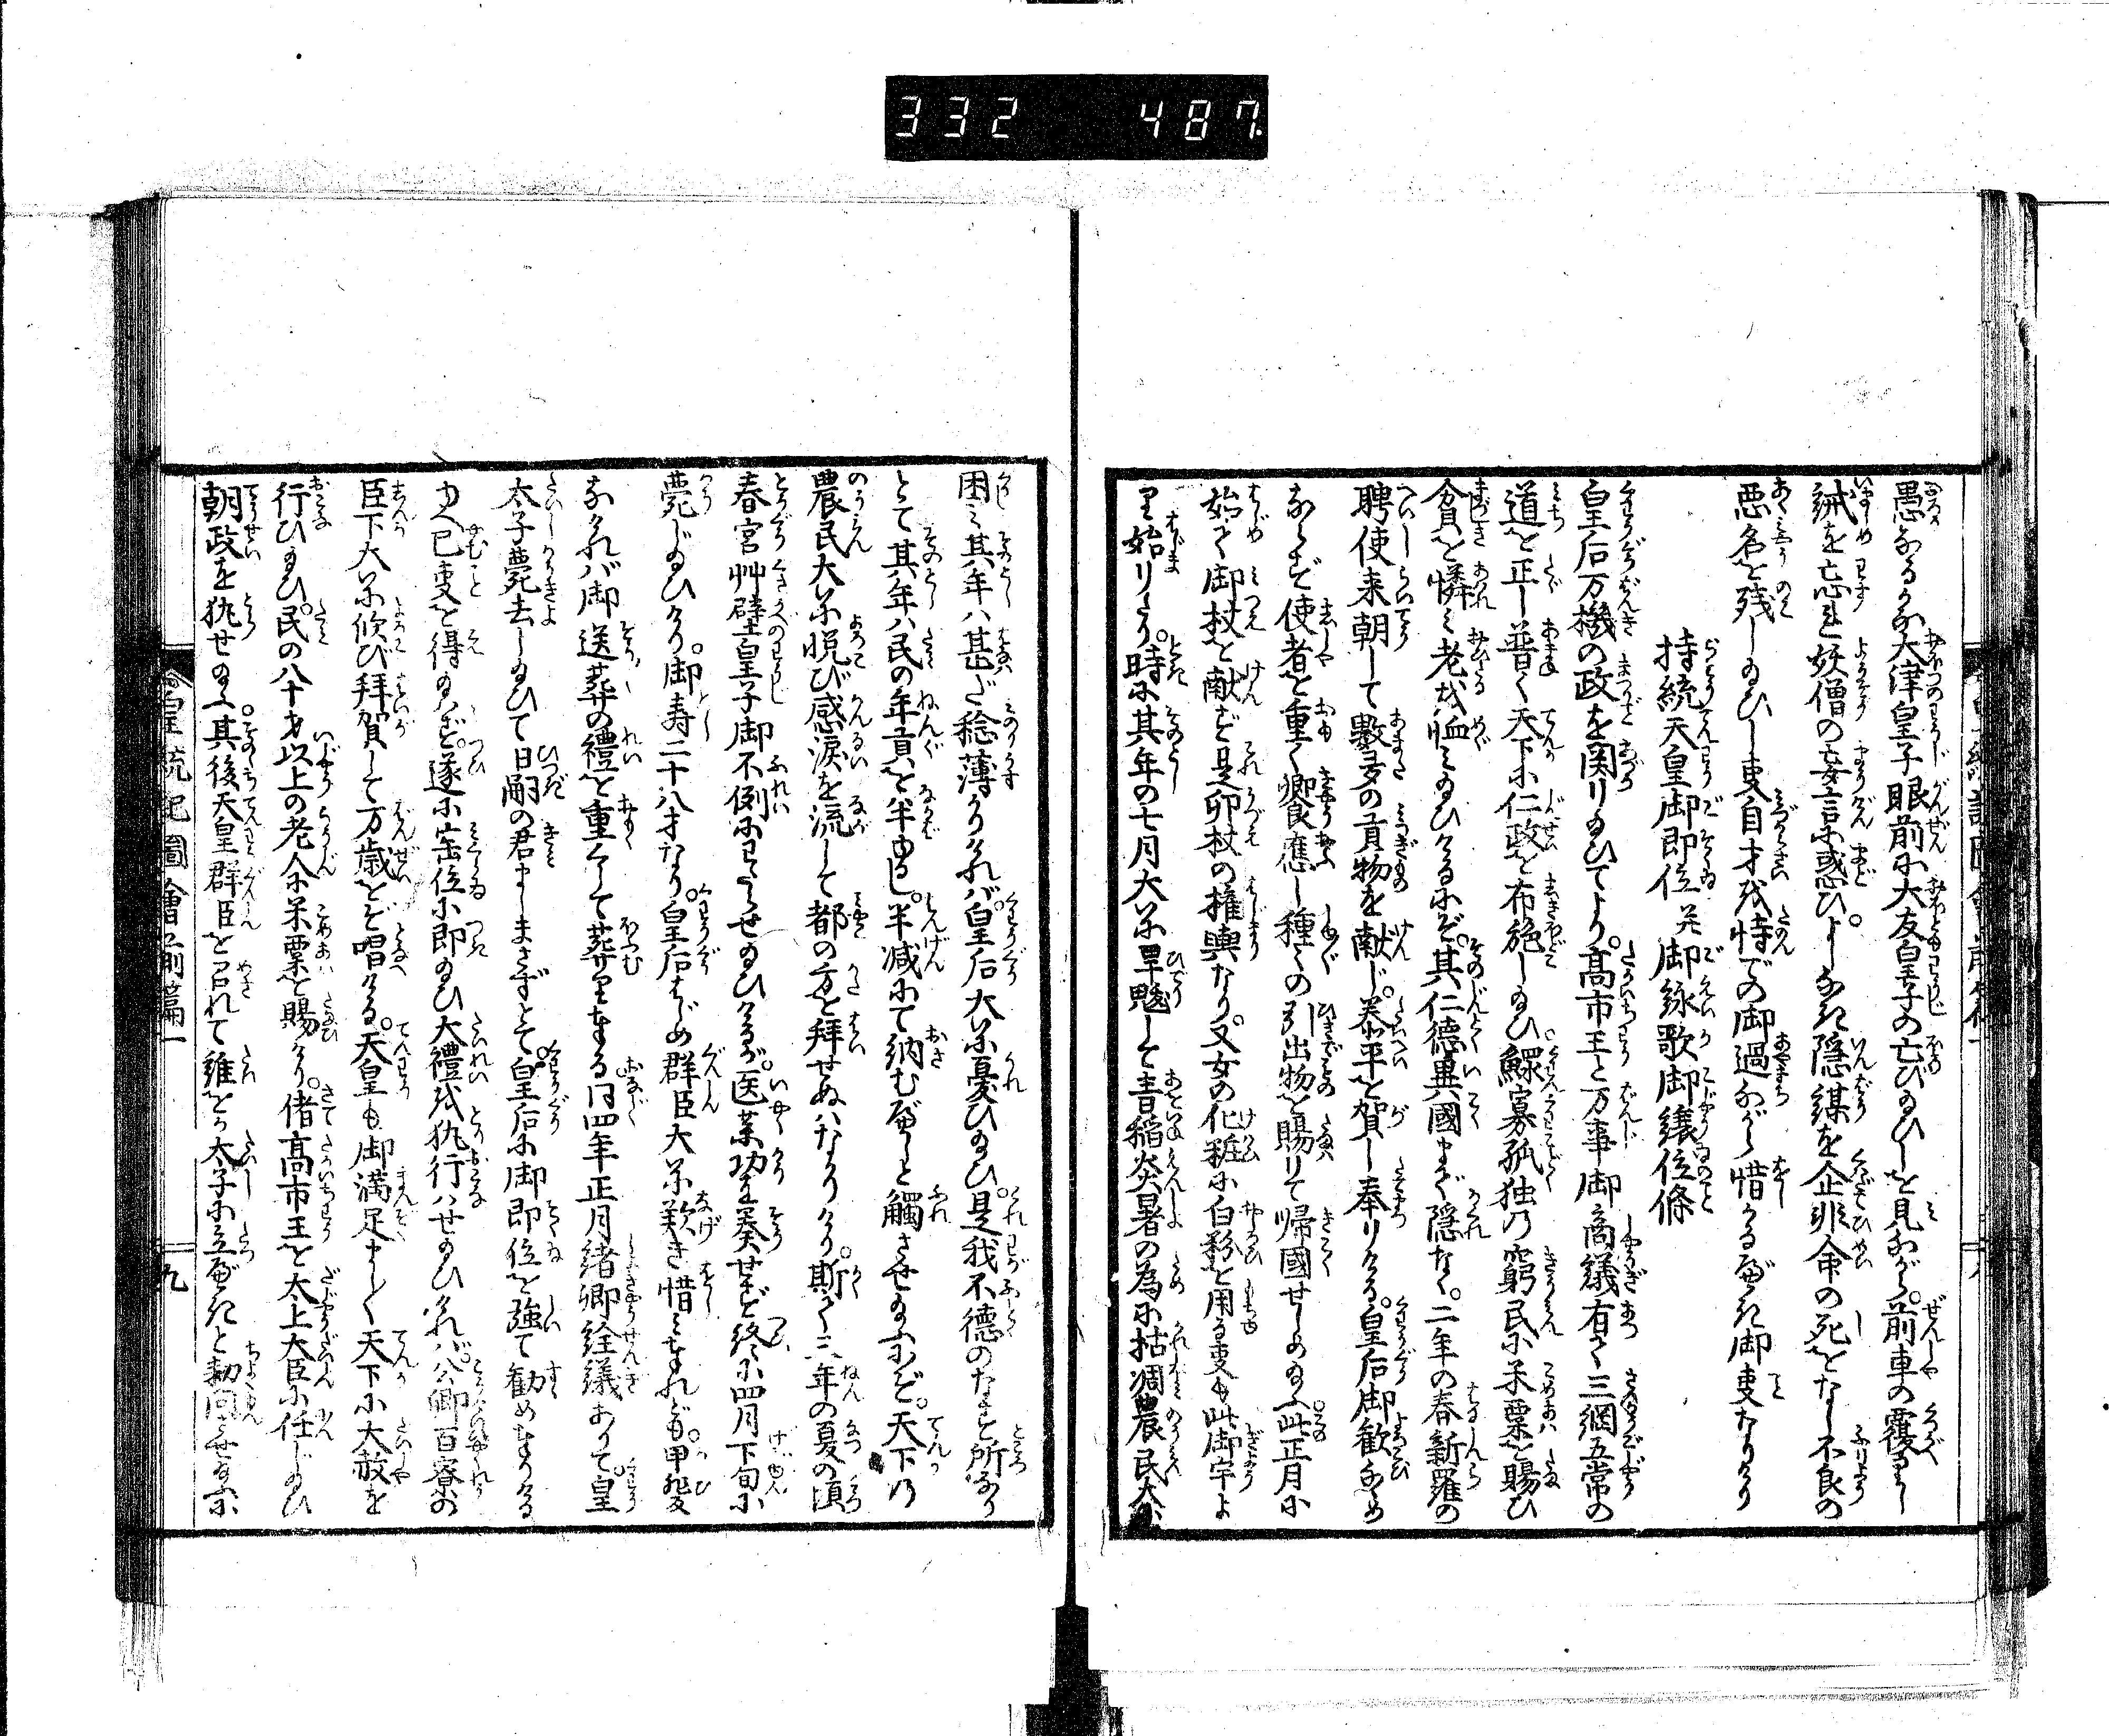 332 487
愚なるかな大津皇子眼前に大友皇子の亡び給ひしを見ながら。前車の覆りし
誡を忘れ妖僧の妄言に惑ひ。よしなき隠謀を企非命の死をなし不良の
悪名を残し給ひし事自才を恃での御過ながら惜かるべき御事なりけり
持統天皇御即位并御詠歌御譲位條
皇后万機の政を関り給ひてより。高市王と万事御商議有て三綱五常の
道を正し普く天下に仁政を布施し給ひ。鰥寡孤独の窮民に米粟を賜ひ
貧を憐ミ老を恤ミ給ひけるにぞ。其仁徳異國まで隠なく。二年の春新羅の
聘使来朝して數多の貢物を献じ。泰平を賀し奉りける。皇后御歓斜め
ならず使者を重く饗應し種々の引出物を賜りて帰國せしめ給ふ。此正月に
始て御杖を献ず是卯杖の権輿なり。又女の化粧に白粉を用る事も此御宇よ
り始りたり。時に其年の七月大に旱魃して青稲炎暑の為に枯凋農民大に
困ミ其年ハ甚だ稔薄かりけれバ。皇后大に憂ひ給ひ。是我不徳のなす所なり
とて其年ハ民の年貢を半減し。半減にて納むべしと觸させ給ふにぞ。天下の
農民大に悦び感涙を流して都の方を拝せぬハなかりけり。斯て三年の夏の頃
春宮艸壁皇子御不例にわたらせ給ひけるが。医薬功を奏せず終に四月下旬に
薨じ給ひけり。御寿二十八才なり。皇后はじめ群臣大に歎き惜ミ奉れども。甲斐
なけれバ御送葬の禮を重くして葬り奉る。同四年正月諸卿詮議ありて。皇
太子薨去し給ひて日嗣の君ましまさずとて。皇后に御即位を強て勧め奉りける
ゆへ已事を得給ハず。遂に宝位に即給ひ大禮を執行ハせ給ひけれバ。公卿百寮の
臣下大に欣び拝賀して万歳をぞ唱へける。天皇も御満足まし〳〵天下に大赦を
行ひ給ひ。民の八十才以上の老人に米粟を賜けり。偖高市王を太上大臣に任じ給ひ
朝政を執せ給ふ。其後天皇群臣を召れて誰をか太子に立べきと勅問せ給ふに
皇統記圖會前篇一 九